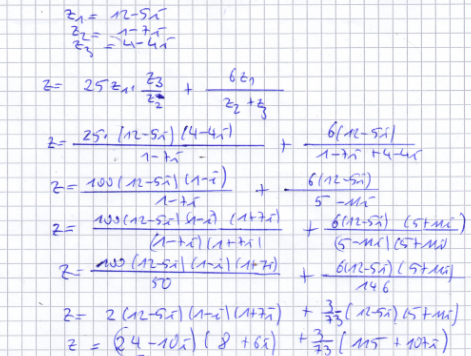 z₁ = 12-5i
z₂ = 1-7i
z₃ = 4-4i
z = 25z₁ · z₃/z₂ + 6z₁/(z₂+z₃)
z = 25·(12-5i)(4-4i)/(1-7i) + 6(12-5i)/(1-7i+4-4i)
z = 100(12-5i)(1-i)/(1-7i) + 6(12-5i)/(5-11i)
z = 100(12-5i)(1-i)(1+7i)/((1-7i)(1+7i)) + 6(12-5i)(5+11i)/((5-11i)(5+11i))
z = 100(12-5i)(1-i)(1+7i)/50 + 6(12-5i)(5+11i)/146
z = 2(12-5i)(1-i)(1+7i) + 3/73(12-5i)(5+11i)
z = (24-10i)(8+6i) + 3/73(115+107i)